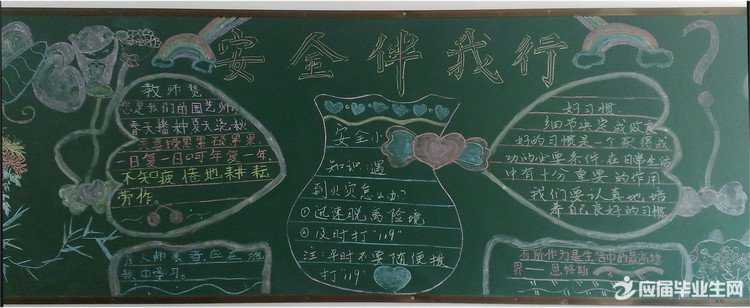 安全伴我行
教师赞
您是我们的园艺师
春天播种夏天浇
一日复一日,年复一年,
不知疲倦地耕耘
劳作。
安全小
知识:遇
到火灾怎么办?
①迅速脱离险境
②及时打"119"
注:平时不要随便拨
打"119"
好习惯
细节决定成败
好的习惯是一个取得成
功的必要条件在日常生活
中有十分重要的作用
我们要认真地培
养自己良好的习惯
有所作为是生活中的最高境
界——恩格斯
应届毕业生网